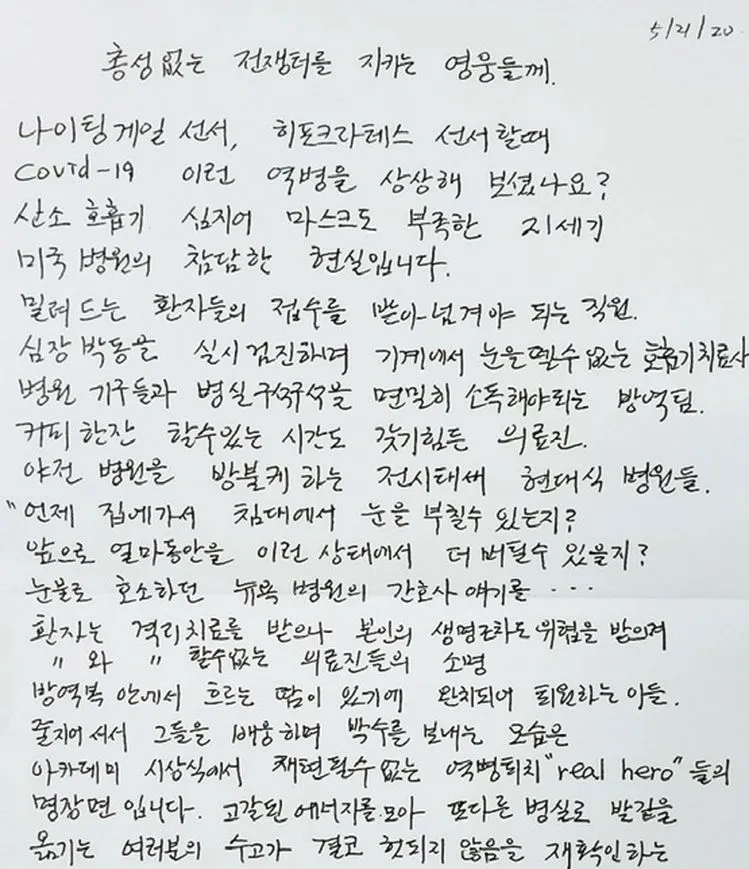 5/21/20
총성없는 전쟁터를 지키는 영웅들께.
나이팅게일 선서, 히포크라테스 선서할때
COVID-19 이런 역병을 상상해 보셨나요?
산소 호흡기 심지어 마스크도 부족한 21세기
미국 병원의 참담한 현실입니다.
밀려드는 환자들의 접수를 받아넘겨야 되는 직원.
심장 박동을 실시 검진하며 기계에서 눈을 뗄수 없는 호흡기치료사
병원 기구들과 병실구석구석을 면밀히 소독해야되는 방역팀.
커피 한잔 할수있는 시간도 갖기힘든 의료진.
야전 병원을 방불케 하는 전시태세 현대식 병원들.
"언제 집에가서 침대에서 눈을 부칠수 있는지?
앞으로 얼마동안을 이런 상태에서 더 버틸수 있을지?
눈물로 호소하던 뉴욕 병원의 간호사 얘기를 ...
환자는 격리치료를 받으나 본인의 생명조차도 위협을 받으며
〃 와 〃 할수없는 의료진들의 소명
방역복 안에서 흐르는 땀이 있기에 완치되어 퇴원하는 이들.
줄지어 서서 그들을 배웅하며 박수를 보내는 모습은
아카데미 시상식에서 재현될수 없는 역병퇴치 "real hero" 들의
명장면 입니다. 고갈된 에너지를 모아 또다른 병실로 발길을
옮기는 여러분의 수고가 결코 헛되지 않음을 재확인하는